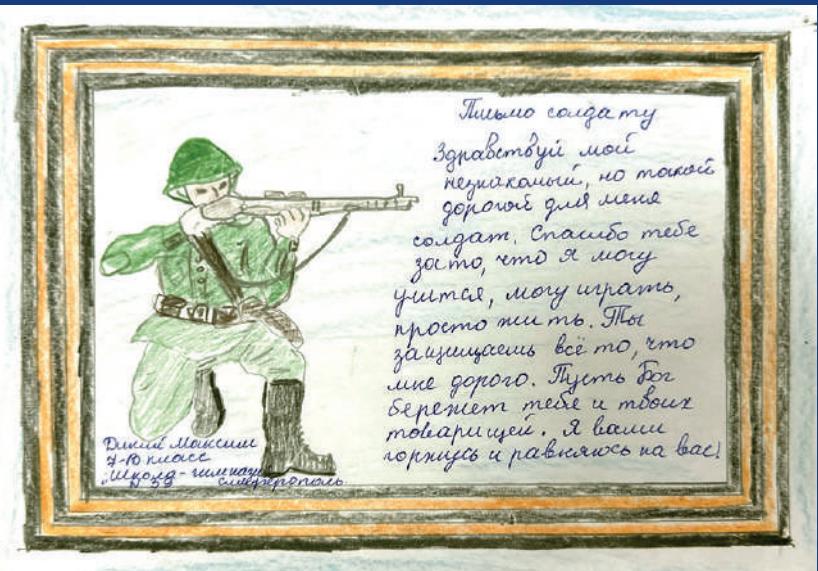 Письмо солдату
Здравствуй мой
незнакомый, но такой
дорогой для меня
солдат. Спасибо тебе
за то, что я могу
учится, могу играть,
просто жить. Ты
защищаешь всё то, что
мне дорого. Пусть Бог
бережет тебя и твоих
товарищей. Я вами
горжусь и равняюсь на вас!
Дикий Максим
7-Ю класс
"Школа-гимназия
N 39 Симферополь